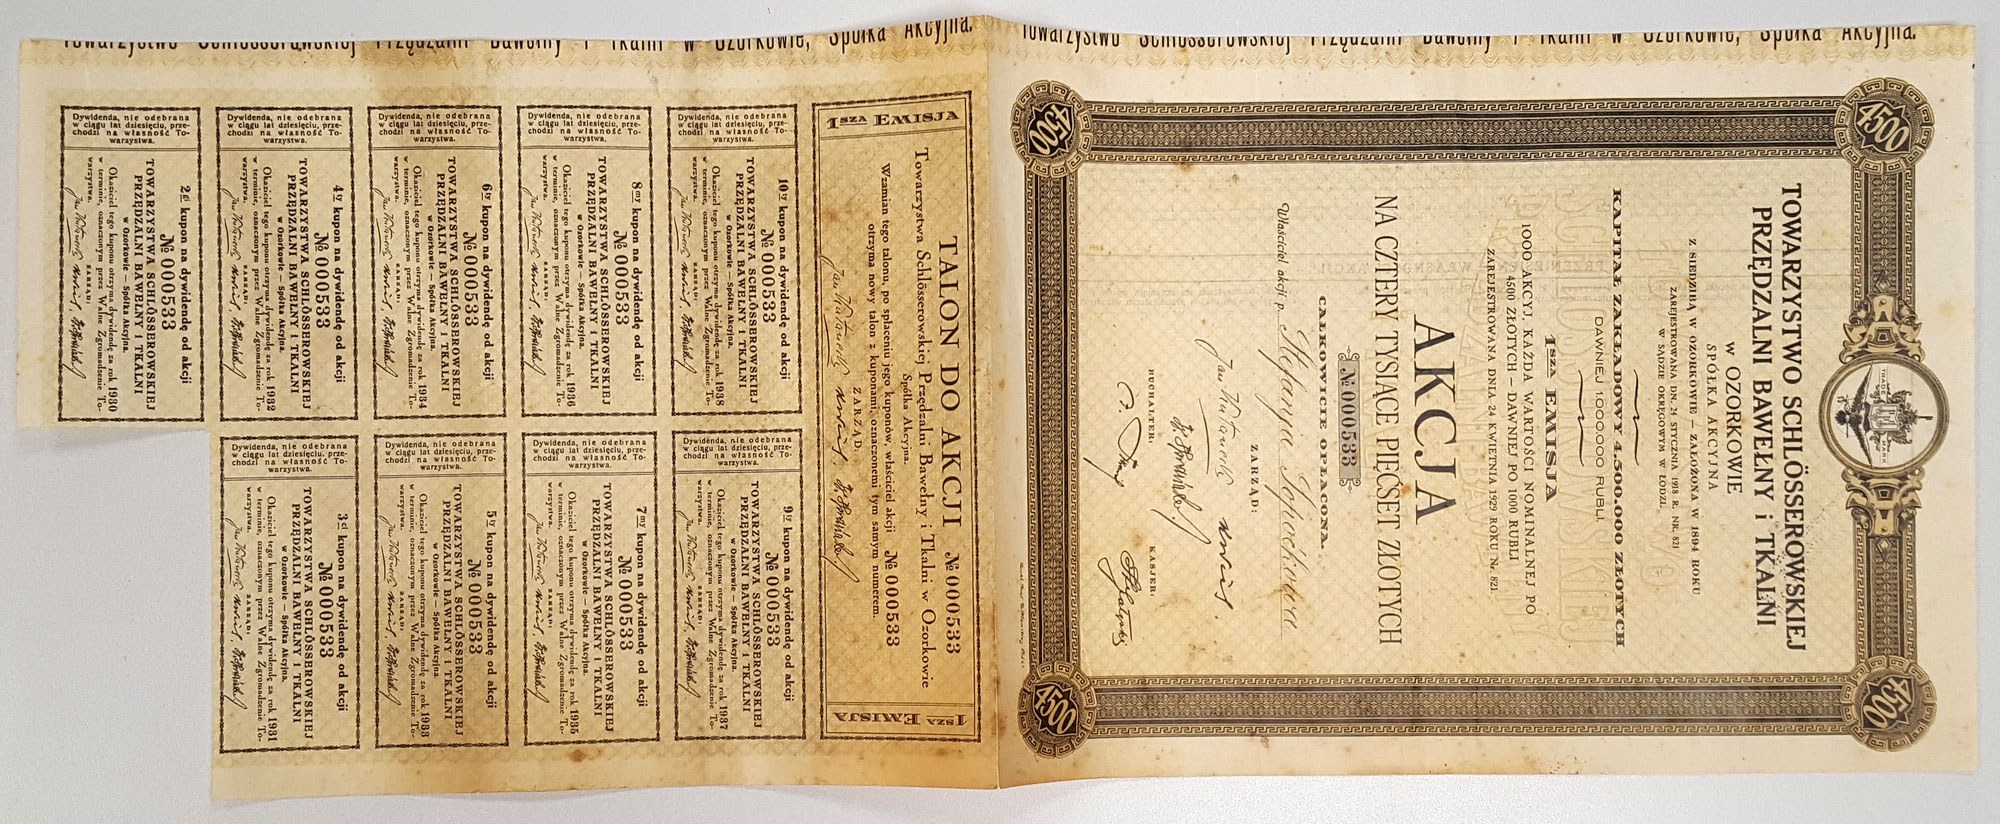 Towarzystwo Schlösserowskiej Przędzalni Bawełny i Tkalni w Ozorkowie, Spółka Akcyjna.
Towarzystwo Schlösserowskiej Przędzalni Bawełny i Tkalni w Ozorkowie, Spółka Akcyjna.
4500
4500
TRADE MARK
TOWARZYSTWO SCHLÖSSEROWSKIEJ
PRZĘDZALNI BAWEŁNY i TKALNI
W OZORKOWIE
SPÓŁKA AKCYJNA
Z SIEDZIBĄ W OZORKOWIE – ZAŁOŻONA W 1894 ROKU
ZAREJESTROWANA DN. 24 STYCZNIA 1918 R. NR. 821
W SĄDZIE OKRĘGOWYM W ŁODZI.
KAPITAŁ ZAKŁADOWY 4.500.000 ZŁOTYCH
DAWNIEJ 1.000.000 RUBLI.
1sza EMISJA
1000 AKCYJ, KAŻDA WARTOŚCI NOMINALNEJ PO
4500 ZŁOTYCH – DAWNIEJ PO 1000 RUBLI
ZAREJESTROWANA DNIA 24 KWIETNIA 1929 ROKU Nr. 821
AKCJA
NA CZTERY TYSIĄCE PIĘĆSET ZŁOTYCH
№ 000533
CAŁKOWICIE OPŁACONA.
Właściciel akcji p.
ZARZĄD:
BUCHALTER:
KASJER:
4500
4500
1sza EMISJA
1sza EMISJA
TALON DO AKCJI № 000533
Towarzystwa Schlösserowskiej Przędzalni Bawełny i Tkalni w Ozorkowie
Spółka Akcyjna.
Wzamian tego talonu, po spłaceniu jego kuponów, właściciel akcji № 000533
otrzyma nowy talon z kuponami, oznaczonemi tym samym numerem.
ZARZĄD:
Dywidenda, nie odebrana
w ciągu lat dziesięciu, prze-
chodzi na własność To-
warzystwa.
10ty kupon na dywidendę od akcji
№ 000533
TOWARZYSTWA SCHLÖSSEROWSKIEJ
PRZĘDZALNI BAWEŁNY I TKALNI
w Ozorkowie – Spółka Akcyjna.
Okaziciel tego kuponu otrzyma dywidendę za rok 1938
w terminie, oznaczonym przez Walne Zgromadzenie To-
warzystwa.
ZARZĄD:
Dywidenda, nie odebrana
w ciągu lat dziesięciu, prze-
chodzi na własność To-
warzystwa.
9ty kupon na dywidendę od akcji
№ 000533
TOWARZYSTWA SCHLÖSSEROWSKIEJ
PRZĘDZALNI BAWEŁNY I TKALNI
w Ozorkowie – Spółka Akcyjna.
Okaziciel tego kuponu otrzyma dywidendę za rok 1937
w terminie, oznaczonym przez Walne Zgromadzenie To-
warzystwa.
ZARZĄD:
Dywidenda, nie odebrana
w ciągu lat dziesięciu, prze-
chodzi na własność To-
warzystwa.
8my kupon na dywidendę od akcji
№ 000533
TOWARZYSTWA SCHLÖSSEROWSKIEJ
PRZĘDZALNI BAWEŁNY I TKALNI
w Ozorkowie – Spółka Akcyjna.
Okaziciel tego kuponu otrzyma dywidendę za rok 1936
w terminie, oznaczonym przez Walne Zgromadzenie To-
warzystwa.
ZARZĄD:
Dywidenda, nie odebrana
w ciągu lat dziesięciu, prze-
chodzi na własność To-
warzystwa.
7my kupon na dywidendę od akcji
№ 000533
TOWARZYSTWA SCHLÖSSEROWSKIEJ
PRZĘDZALNI BAWEŁNY I TKALNI
w Ozorkowie – Spółka Akcyjna.
Okaziciel tego kuponu otrzyma dywidendę za rok 1935
w terminie, oznaczonym przez Walne Zgromadzenie To-
warzystwa.
ZARZĄD:
Dywidenda, nie odebrana
w ciągu lat dziesięciu, prze-
chodzi na własność To-
warzystwa.
6ty kupon na dywidendę od akcji
№ 000533
TOWARZYSTWA SCHLÖSSEROWSKIEJ
PRZĘDZALNI BAWEŁNY I TKALNI
w Ozorkowie – Spółka Akcyjna.
Okaziciel tego kuponu otrzyma dywidendę za rok 1934
w terminie, oznaczonym przez Walne Zgromadzenie To-
warzystwa.
ZARZĄD:
Dywidenda, nie odebrana
w ciągu lat dziesięciu, prze-
chodzi na własność To-
warzystwa.
5ty kupon na dywidendę od akcji
№ 000533
TOWARZYSTWA SCHLÖSSEROWSKIEJ
PRZĘDZALNI BAWEŁNY I TKALNI
w Ozorkowie – Spółka Akcyjna.
Okaziciel tego kuponu otrzyma dywidendę za rok 1933
w terminie, oznaczonym przez Walne Zgromadzenie To-
warzystwa.
ZARZĄD:
Dywidenda, nie odebrana
w ciągu lat dziesięciu, prze-
chodzi na własność To-
warzystwa.
4ty kupon na dywidendę od akcji
№ 000533
TOWARZYSTWA SCHLÖSSEROWSKIEJ
PRZĘDZALNI BAWEŁNY I TKALNI
w Ozorkowie – Spółka Akcyjna.
Okaziciel tego kuponu otrzyma dywidendę za rok 1932
w terminie, oznaczonym przez Walne Zgromadzenie To-
warzystwa.
ZARZĄD:
Dywidenda, nie odebrana
w ciągu lat dziesięciu, prze-
chodzi na własność To-
warzystwa.
3ci kupon na dywidendę od akcji
№ 000533
TOWARZYSTWA SCHLÖSSEROWSKIEJ
PRZĘDZALNI BAWEŁNY I TKALNI
w Ozorkowie – Spółka Akcyjna.
Okaziciel tego kuponu otrzyma dywidendę za rok 1931
w terminie, oznaczonym przez Walne Zgromadzenie To-
warzystwa.
ZARZĄD:
Dywidenda, nie odebrana
w ciągu lat dziesięciu, prze-
chodzi na własność To-
warzystwa.
2gi kupon na dywidendę od akcji
№ 000533
TOWARZYSTWA SCHLÖSSEROWSKIEJ
PRZĘDZALNI BAWEŁNY I TKALNI
w Ozorkowie – Spółka Akcyjna.
Okaziciel tego kuponu otrzyma dywidendę za rok 1930
w terminie, oznaczonym przez Walne Zgromadzenie To-
warzystwa.
ZARZĄD: